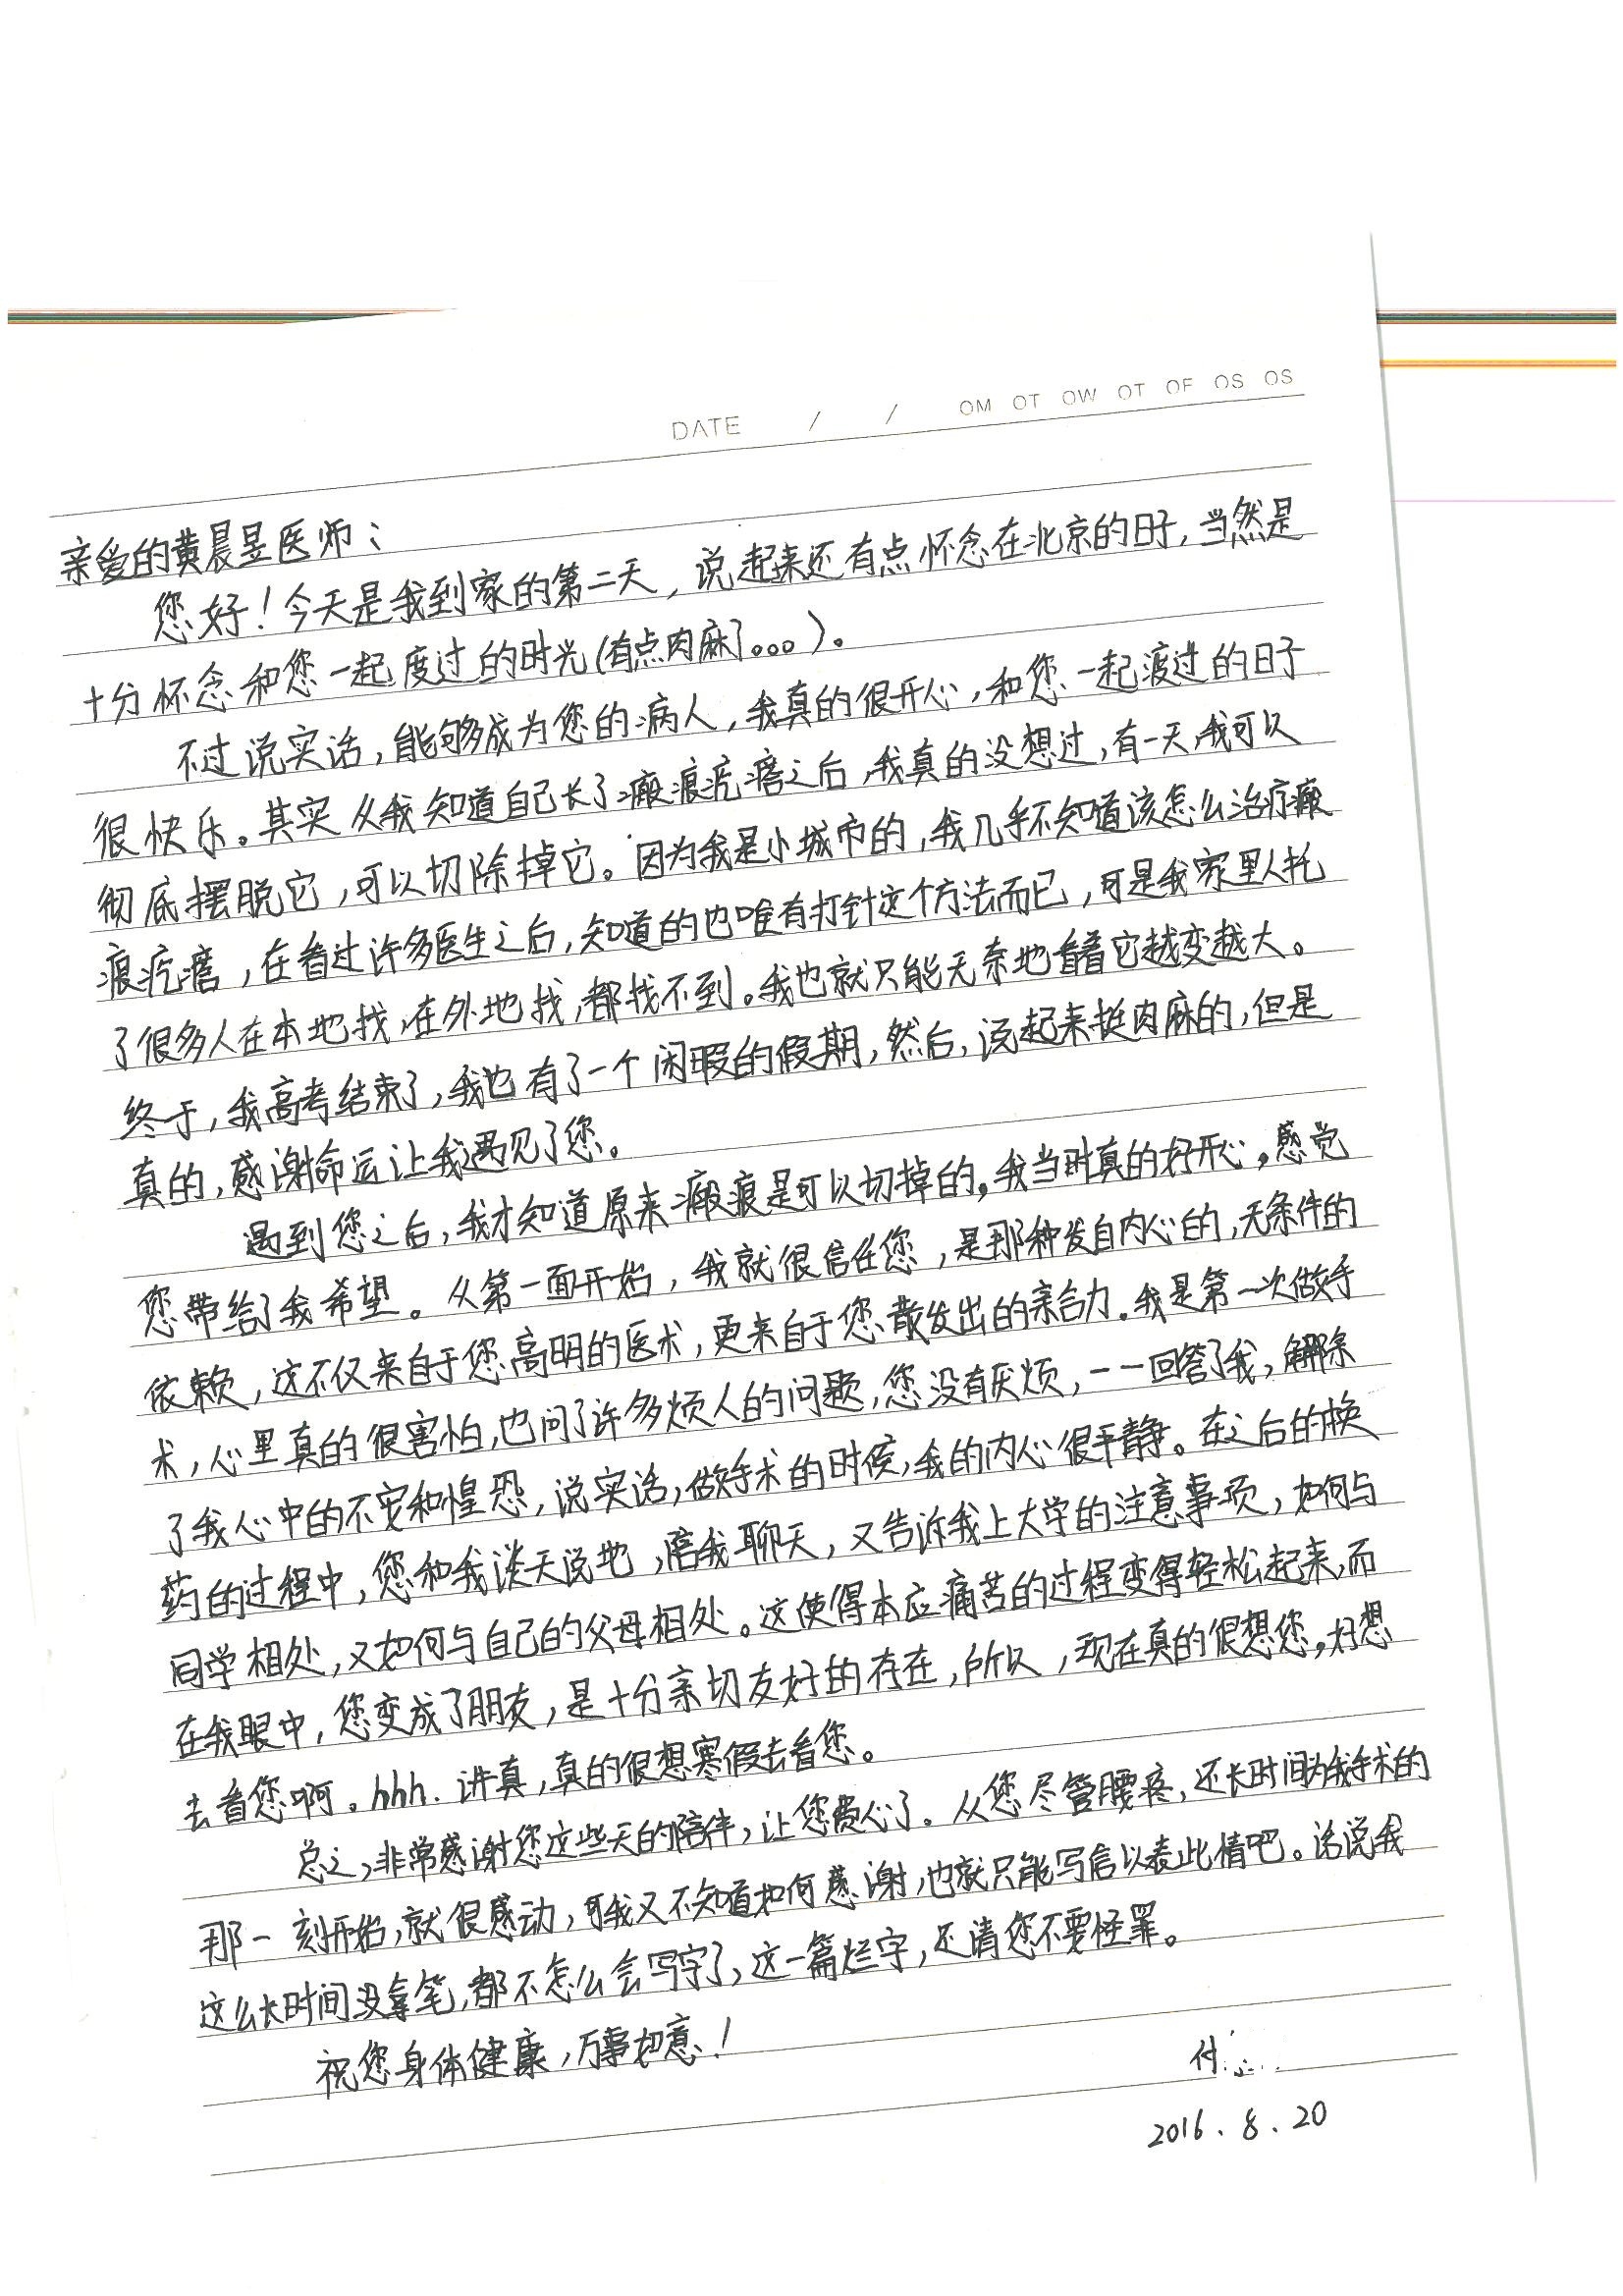 DATE / / OM OT OW OT OF OS OS
亲爱的黄晨昱医师：
您好！今天是我到家的第二天，说起来还有点怀念在北京的日子，当然是
十分怀念和您一起度过的时光(有点肉麻了。。。)。
不过说实话，能够成为您的病人，我真的很开心，和您一起渡过的日子
很快乐。其实从我知道自己长了瘢痕疙瘩之后，我真的没想过，有一天，我可以
彻底摆脱它，可以切除掉它。因为我是小城市的，我几乎不知道该怎么治疗瘢
痕疙瘩，在看过许多医生之后，知道的也唯有打针这个方法而已，可是我家里人托
了很多人在本地找，在外地找，都找不到。我也就只能无奈地看着它越变越大。
终于，我高考结束了，我也有了一个闲暇的假期，然后，说起来挺肉麻的，但是
真的，感谢命运让我遇见了您。
遇到您之后，我才知道原来瘢痕是可以切掉的。我当时真的好开心。感觉
您带给了我希望。从第一面开始，我就很信任您，是那种发自内心的，无条件的
依赖，这不仅来自于您高明的医术，更来自于您散发出的亲合力。我是第一次做手
术，心里真的很害怕，也问了许多烦人的问题，您没有厌烦，一一回答了我，解除
了我心中的不安和惶恐，说实话，做手术的时候，我的内心很平静。在之后的换
药的过程中，您和我谈天说地，陪我聊天，又告诉我上大学的注意事项，如何与
同学相处，又如何与自己的父母相处。这使得本应痛苦的过程变得轻松起来，而
在我眼中，您变成了朋友，是十分亲切友好的存在，所以，现在真的很想您。好想
去看您啊。hhh. 讲真，真的很想寒假去看您。
总之，非常感谢您这些天的陪伴，让您费心了。从您尽管腰疼，还长时间为我手术的
那一刻开始，就很感动，可我又不知道如何感谢，也就只能写信以表此情吧。话说我
这么长时间没拿笔，都不怎么会写字了，这一篇烂字，还请您不要怪罪。
祝您身体健康，万事如意！
付
2016.8.20